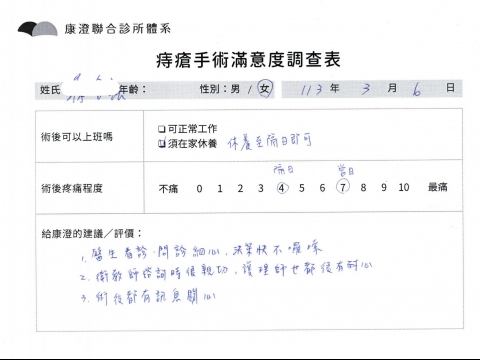 康澄聯合診所體系
痔瘡手術滿意度調查表
姓氏 年齡： 性別：男 / 女 113 年 3 月 6 日
術後可以上班嗎
□ 可正常工作
☑ 須在家休養 休養至隔日即可
隔日 當日
術後疼痛程度 不痛 0 1 2 3 4 5 6 7 8 9 10 最痛
給康澄的建議／評價：
1. 醫生看診、問診細心，決策快不囉嗦
2. 衛教師諮詢時很親切，護理師也都很有耐心
3. 術後都有訊息關心